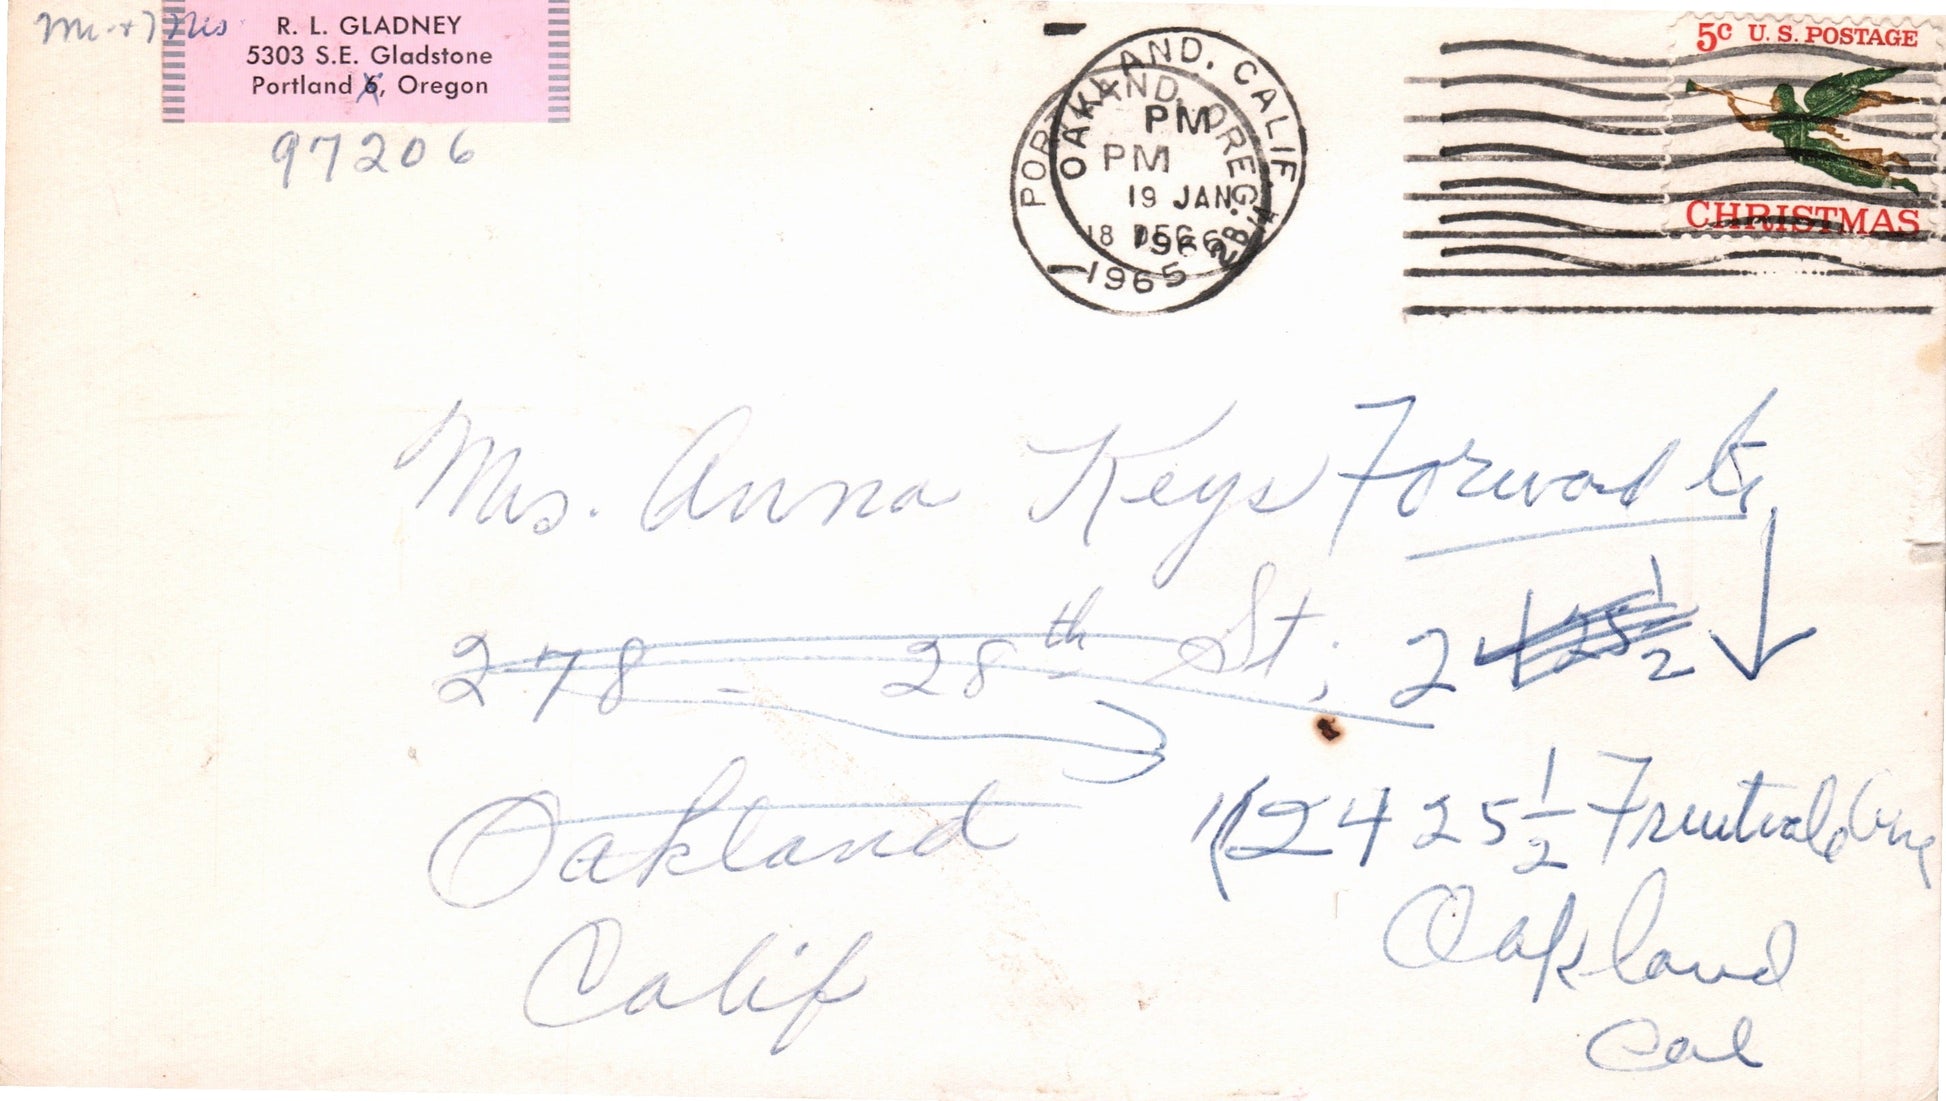 Mr + Mrs R. L. GLADNEY
5303 S.E. Gladstone
Portland 6, Oregon
97206
PORTLAND, OREG.
PM
18 DEC
1965
OAKLAND, CALIF
PM
19 JAN
1966
5c U. S. POSTAGE
CHRISTMAS
Mrs. Anna Keys Forward to
278 - 28th St; 2425 1/2
Oakland
Calif
2425 1/2 Fruitvale Ave
Oakland
Cal